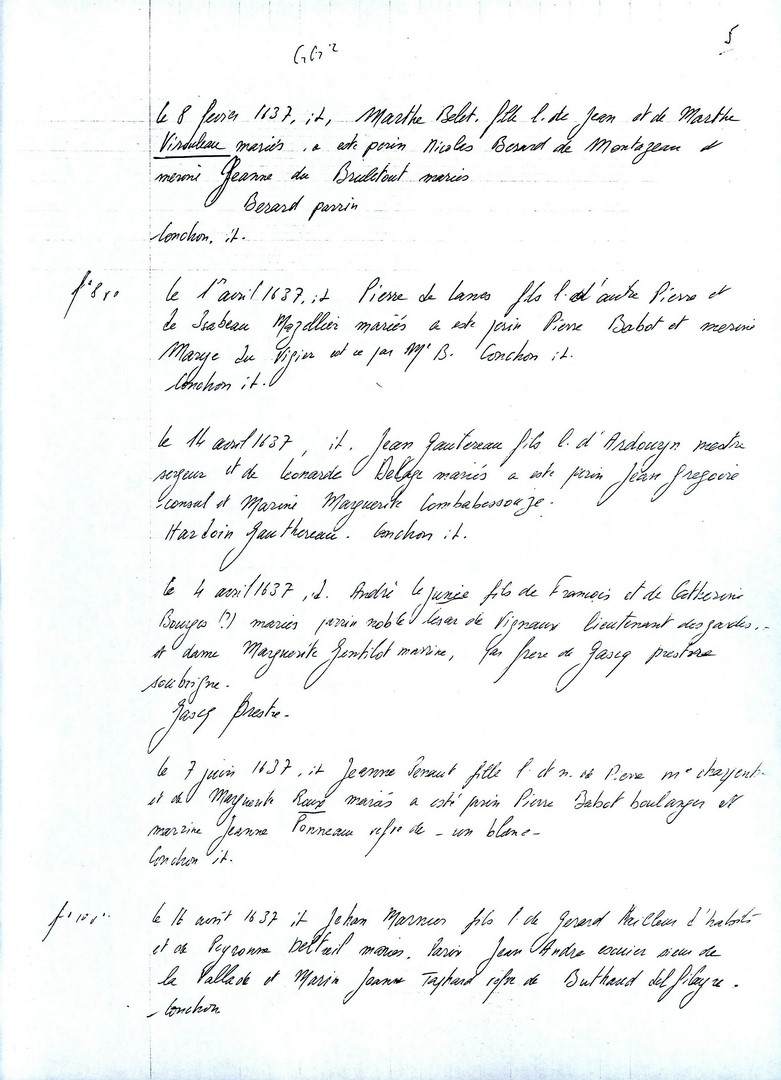 GG²
5
le 8 fevrier 1637, it, Marthe Belet. fille l. de Jean et de Marthe
Virouleau mariés, a este perin Nicolas Berard de Montazeau et
merine Jeanne du Bruletout mariés
Berard parrin
Conchon, it.
f° 8 r°
le 1er avril 1637, it Pierre de Lanes fils l. d'autre Pierre et
de Isabeau Mazellier mariés a este perin Pierre Babot et merine
Marye du Vigier est ce par Mr B. Conchon it.
Conchon it.
le 14 avril 1637, it. Jean Gautereau fils l. d'Ardouyn mestre
sergeur et de Leonarde Delage mariés a este perin Jean Gregoire
consul et Marine Marguerite Combabessouze.
Hardoin Gauthereau. Conchon it.
le 4 avril 1637, it. André le junie fils de Francois et de Catherine
Bourges (?) mariés parin noble Cesar de Vignaux lieutenant des gardes.
et dame Marguerite Gentilot marine, par frere de Gascq prestre
soubsigne.
Gascq Prestre.
le 7 juin 1637, it Jeanne Penaut fille l. et n. de Pierre me charpent.
et de Marguerite Roux mariés a esté parin Pierre Babot boulanger et
marrine Jeanne Ponneau vefve de - un blanc -
Conchon it.
f° 10 v°
le 16 avril 1637 it Jehan Marnier fils l de Gerard tailleur d'habits
et de Peyronne Delteil mariés. Parin Jean Andre escuier sieur de
la Vallade et Marin Jeanne vefve de Buthaud del
Conchon